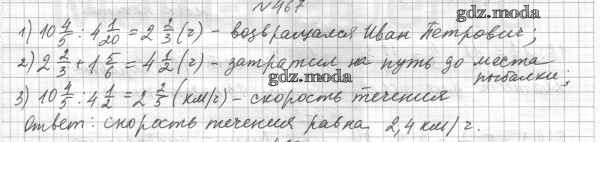 №467
gdz.moda
1) 10 4/5 : 4 1/20 = 2 2/3 (г) - возвращался Иван Петрович;
2) 2 2/3 + 1 5/6 = 4 1/2 (г) - затратил на путь до места
gdz.moda
рыбалки;
gdz.moda
3) 10 4/5 : 4 1/2 = 2 2/5 (км/г) - скорость течения
Ответ: скорость течения равна 2,4 км/г.